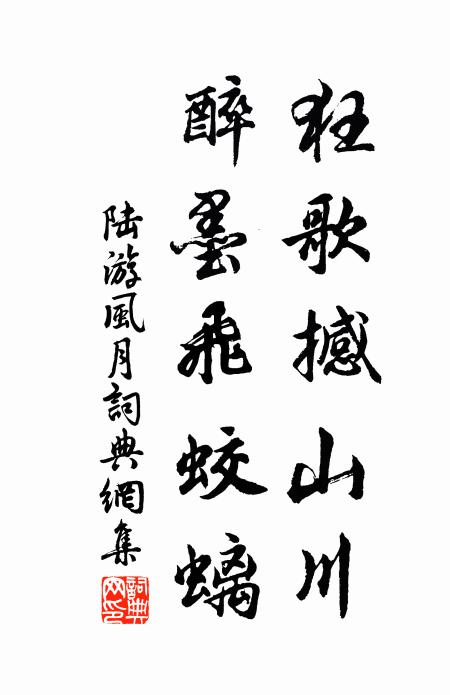 狂歌撼山川
醉墨飛蛟螭
陆游風月詞典網集
詞典网印